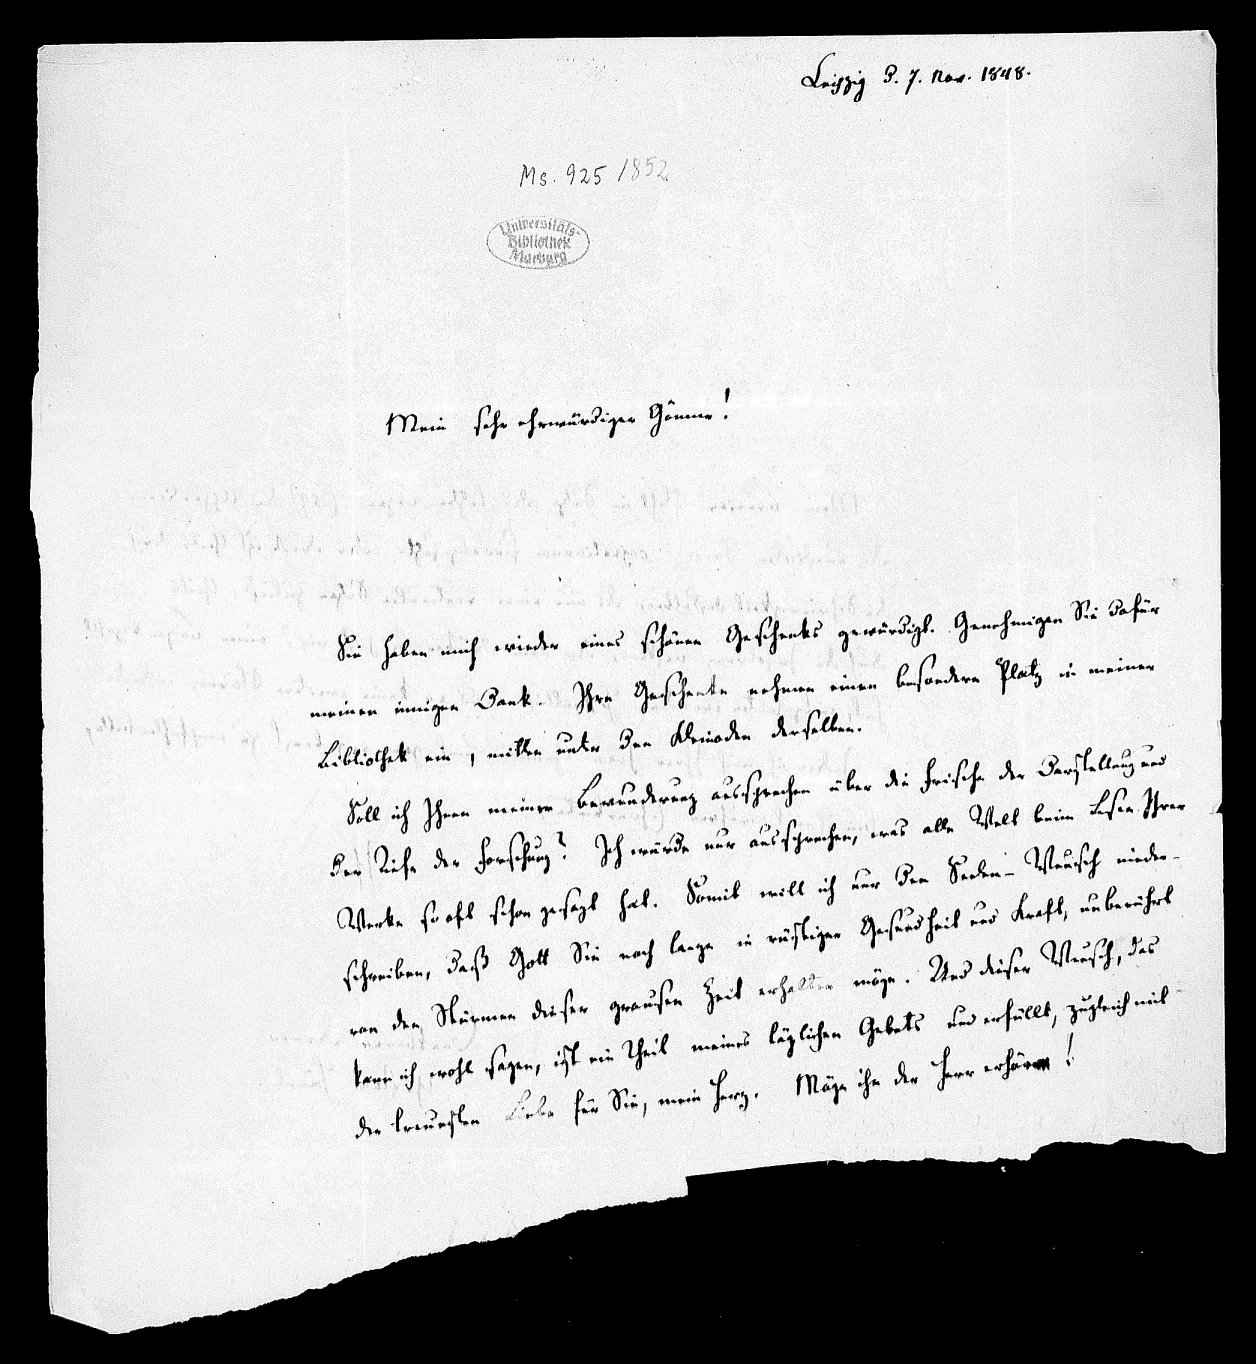 Leipzig d. 7. Nov. 1848.
Ms. 925/852
Universitäts-
Bibliothek
Marburg
Mein sehr ehrwürdiger Gönner!
Sie haben mich wieder eines schönen Geschenks gewürdigt. Genehmigen Sie dafür
meinen innigen Dank. Ihre Geschenke nehmen einen besondern Platz in meiner
Bibliothek ein, mitten unter den Kleinoden derselben.
Soll ich Ihnen meine Bewunderung aussprechen über die Frische der Darstellung und
der Tiefe der Forschung? Ich würde nur aussprechen, was alle Welt beim Lesen Ihrer
Werke so oft schon gesagt hat. Somit will ich nur den Seelen-Wunsch nieder-
schreiben, daß Gott Sie noch lange in rüstiger Gesundheit und Kraft, unberührt
von den Stürmen dieser grausen Zeit erhalten möge. Und dieser Wunsch, das
kann ich wohl sagen, ist ein Theil meines täglichen Gebets und erfüllt, zugleich mit
der treuesten Liebe für Sie, mein Herz. Möge ihn der Herr erhören!